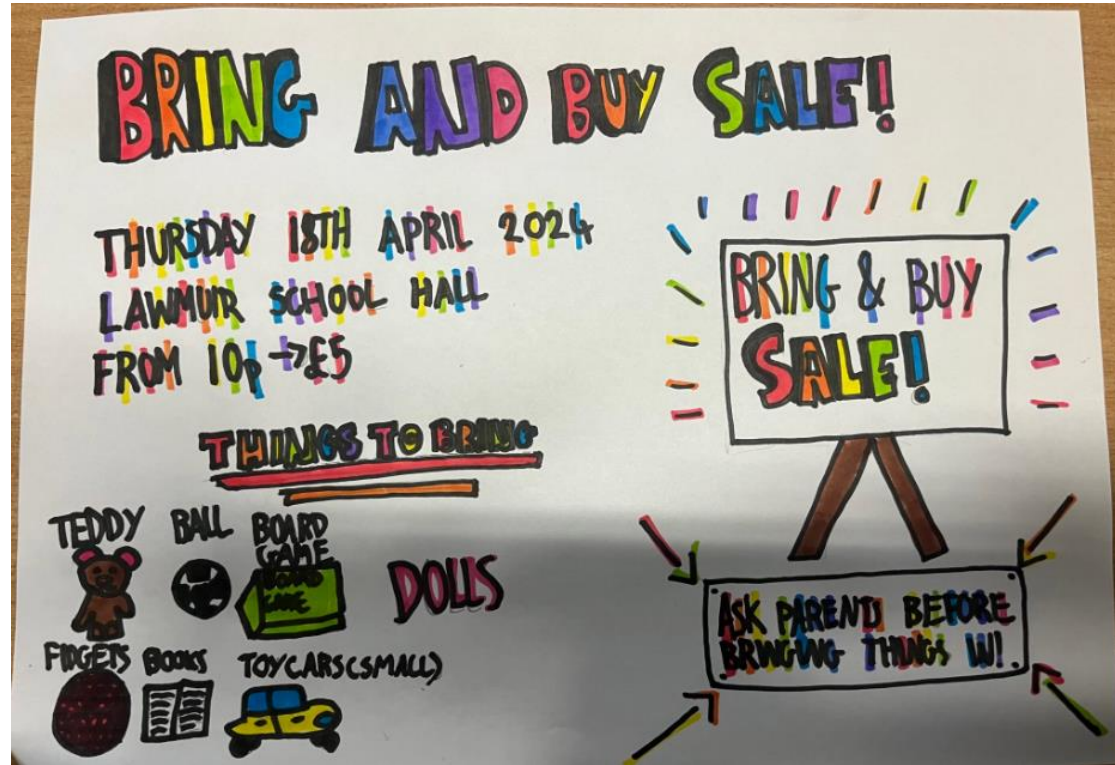 BRING AND BUY SALE!
THURSDAY 18TH APRIL 2024
LAWMUIR SCHOOL HALL
FROM 10p →£5
BRING & BUY
SALE!
THINGS TO BRING
TEDDY
BALL
BOARD
GAME
BOARD
GAME
DOLLS
FIDGETS
BOOKS
TOYCARS(SMALL)
ASK PARENTS BEFORE
BRINGING THINGS IN!